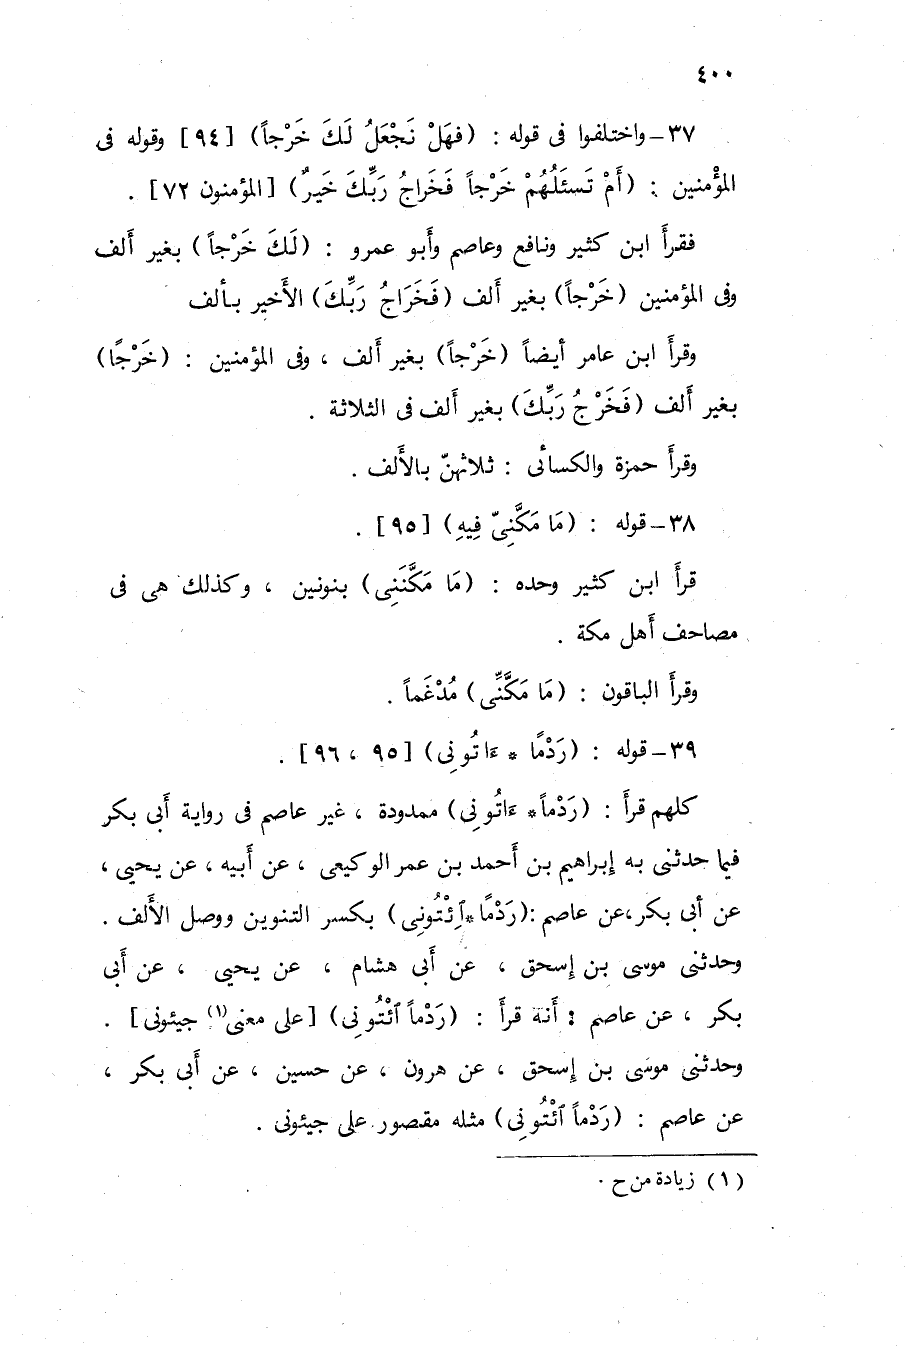 ٤٠٠
٣٧ ــ واختلفوا فى قوله : (فهَلْ نَجْعَلُ لَكَ خَرْجاً) [٩٤] وقوله فى
المؤْمنين : (أَمْ تَسئَلُهُمْ خَرْجاً فَخَراجُ رَبِّكَ خَيرٌ) [المؤمنون ٧٢] .
فقرأَ ابن كثير ونافع وعاصم وأَبو عمرو : (لَكَ خَرْجاً) بغير أَلف
وفى المؤمنين (خَرْجاً) بغير أَلف (فَخَرَاجُ رَبِّكَ) الأَخير بـألف
وقرأَ ابن عامر أَيضاً (خَرْجاً) بغير أَلف ، وفى المؤمنين : (خَرْجًا)
بغير أَلف (فَخَرْجُ رَبِّكَ) بغير أَلف فى الثلاثة .
وقرأَ حمزة والكسائى : ثلاثهنّ بالأَلف .
٣٨ ــ قوله : (مَا مَكَّنِىّ فِيهِ) [٩٥] .
قرأَ ابن كثير وحده : (مَا مَكَّنَنِى) بنونين ، وكذلك هى فى
مصاحف أَهل مكة .
وقرأَ الباقون : (مَا مَكَّنِّى) مُدْغَماً .
٣٩ ــ قوله : (رَدْمًا * ءَاتُونِى) [٩٥ ، ٩٦] .
كلهم قرأَ : (رَدْماً * ءَاتُونِى) ممدودة ، غير عاصم فى رواية أَبى بكر
فيما حدثنى به إبراهيم بن أَحمد بن عمر الوكيعى ، عن أَبيه ، عن يحيى ،
عن أَبى بكر، عن عاصم :(رَدْمًا * ٱئْتُونِى) بكسر التنوين ووصل الأَلف .
وحدثنى موسى بن إسحق ، عن أَبى هشام ، عن يحيى ، عن أَبى
بكر ، عن عاصم : أَنة قرأَ : (رَدْماً ٱئْتُونِى) [على معنى(١) جيئونى] .
وحدثنى موسَى بن إسحق ، عن هرون ، عن حسين ، عن أَبى بكر ،
عن عاصم : (رَدْماً ٱئْتُونِى) مثله مقصور على جيئونى .
(١) زيادة من ح .